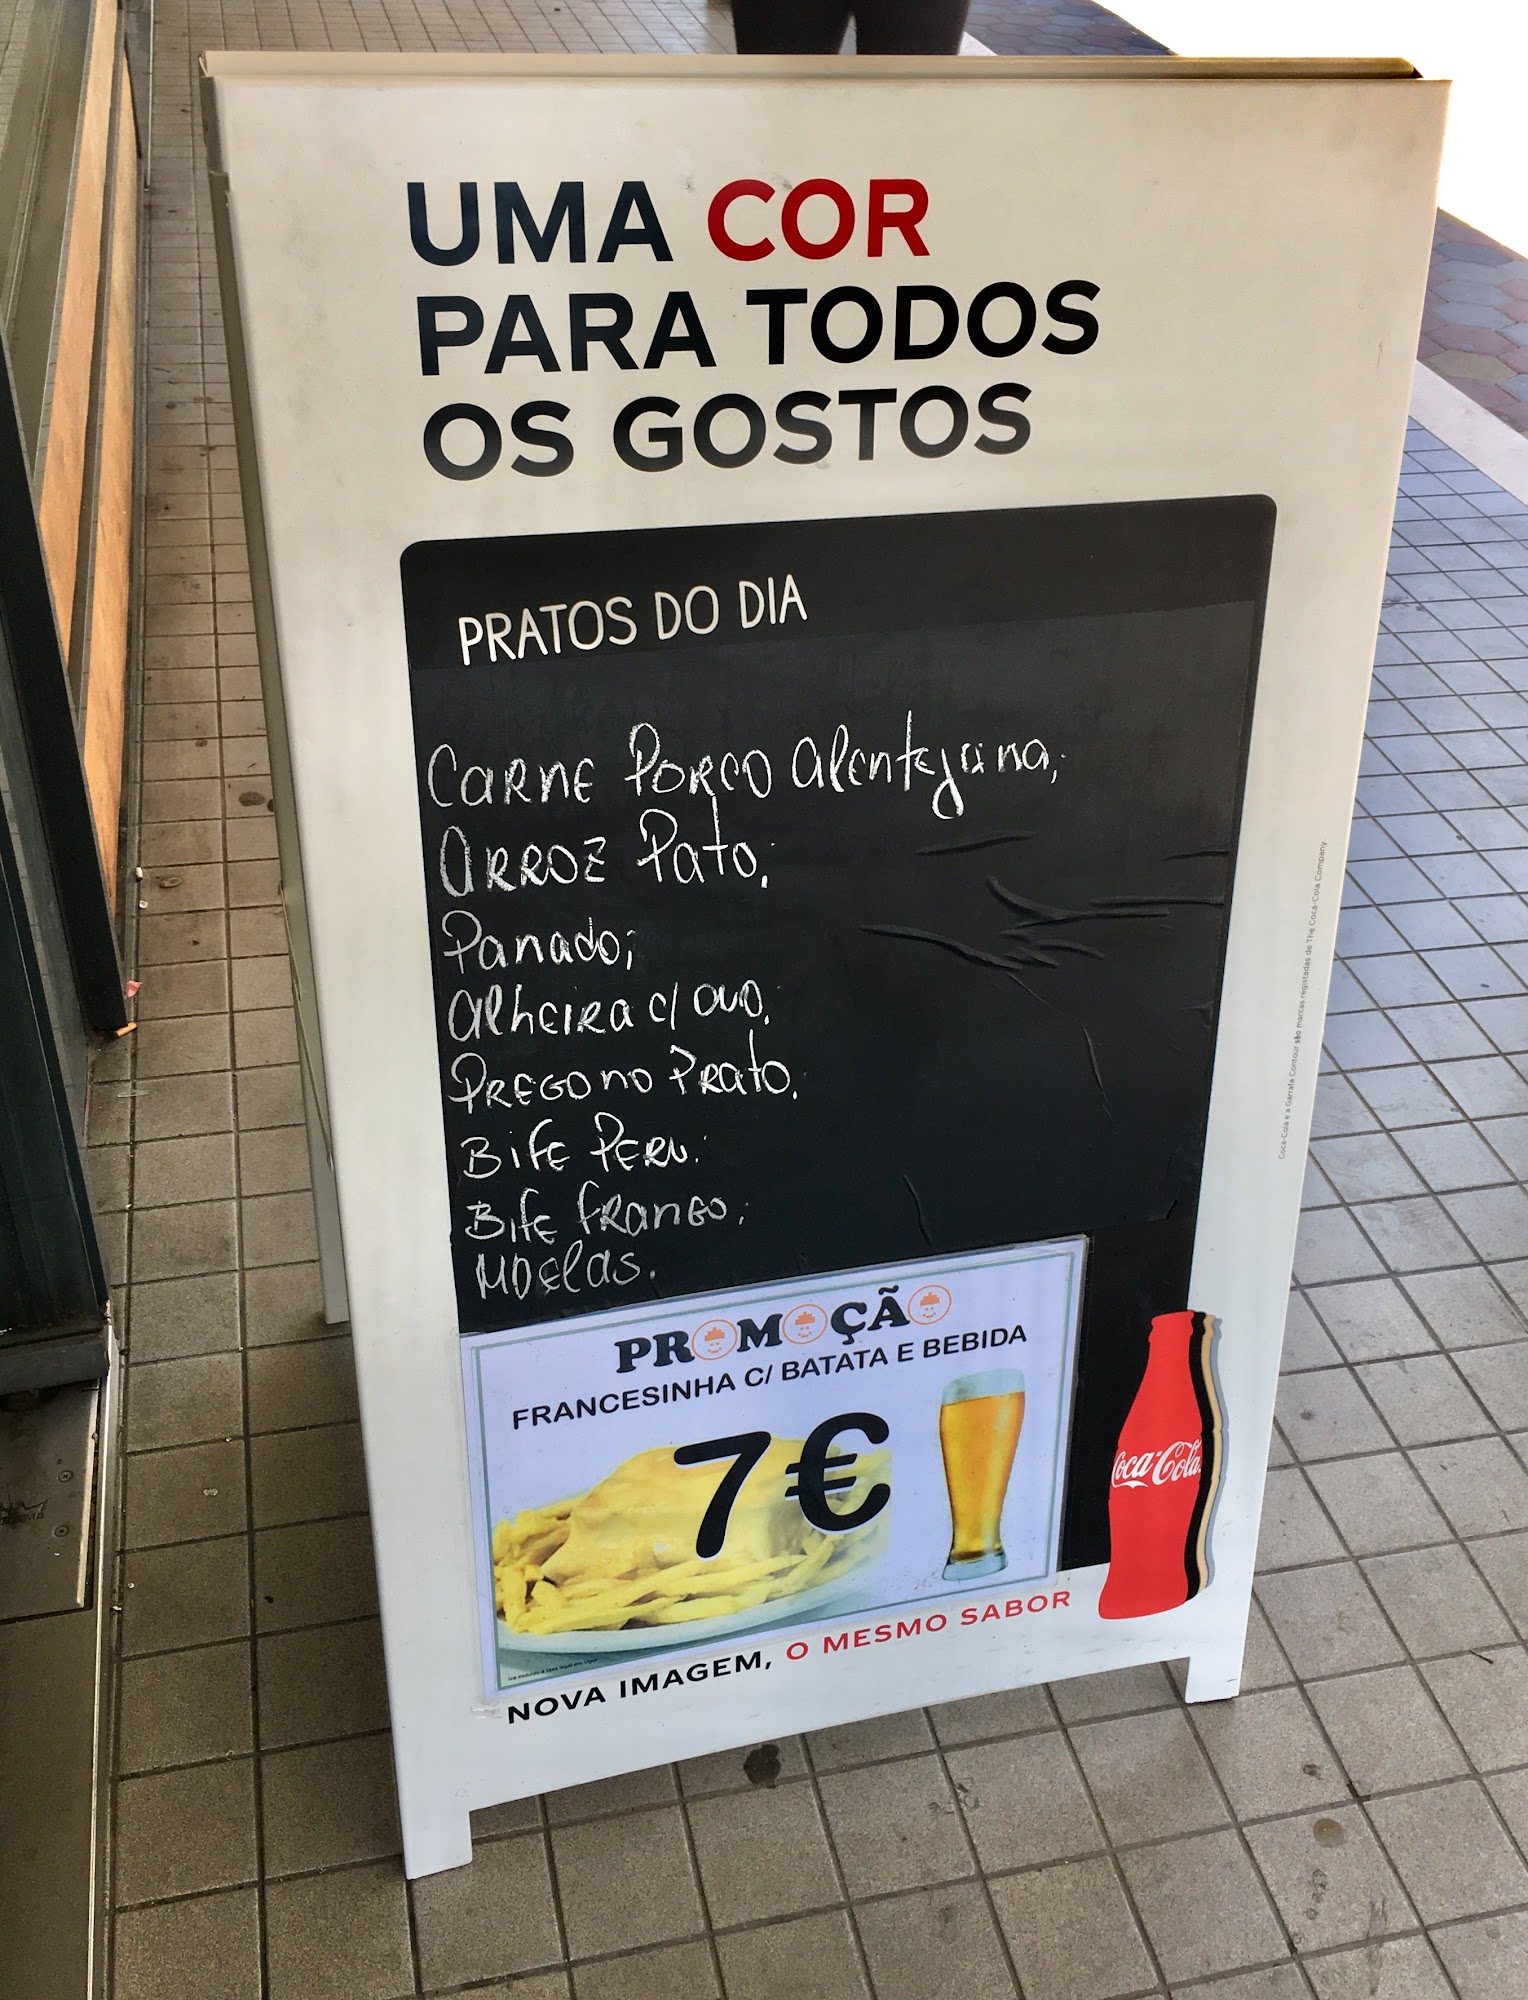 UMA COR
PARA TODOS
OS GOSTOS
PRATOS DO DIA
CARNE PORCO Alentejana;
ARROZ Pato;
Panado;
Alheira c/ ovo;
PREGO no Prato;
Bife PERU;
Bife FRANGO;
MOELAS.
PROMOÇÃO
FRANCESINHA C/ BATATA E BEBIDA
7€
Iva incluído à taxa legal em vigor
NOVA IMAGEM, O MESMO SABOR
Coca-Cola
Coca-Cola e a Garrafa Contour são marcas registadas de The Coca-Cola Company.